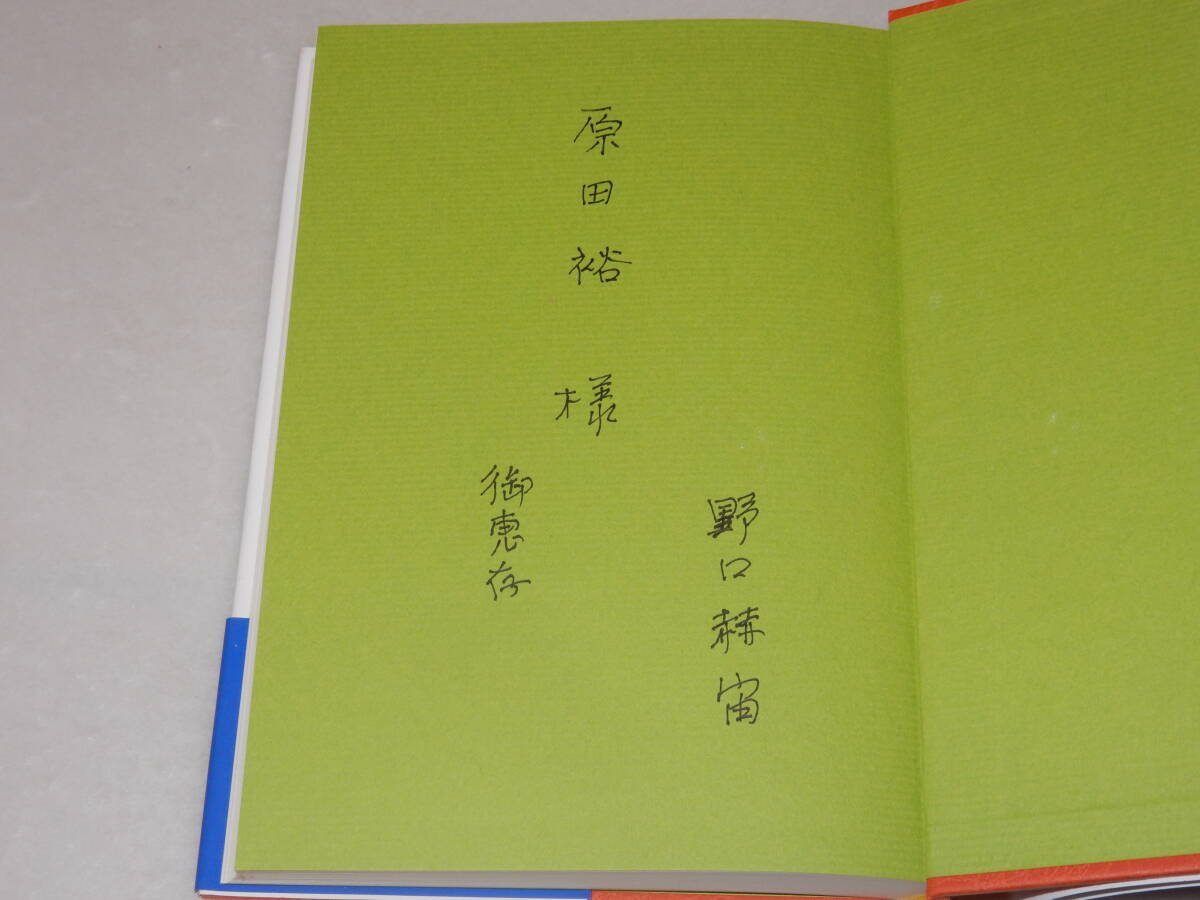 野口赫宙
原田裕様
御恵存